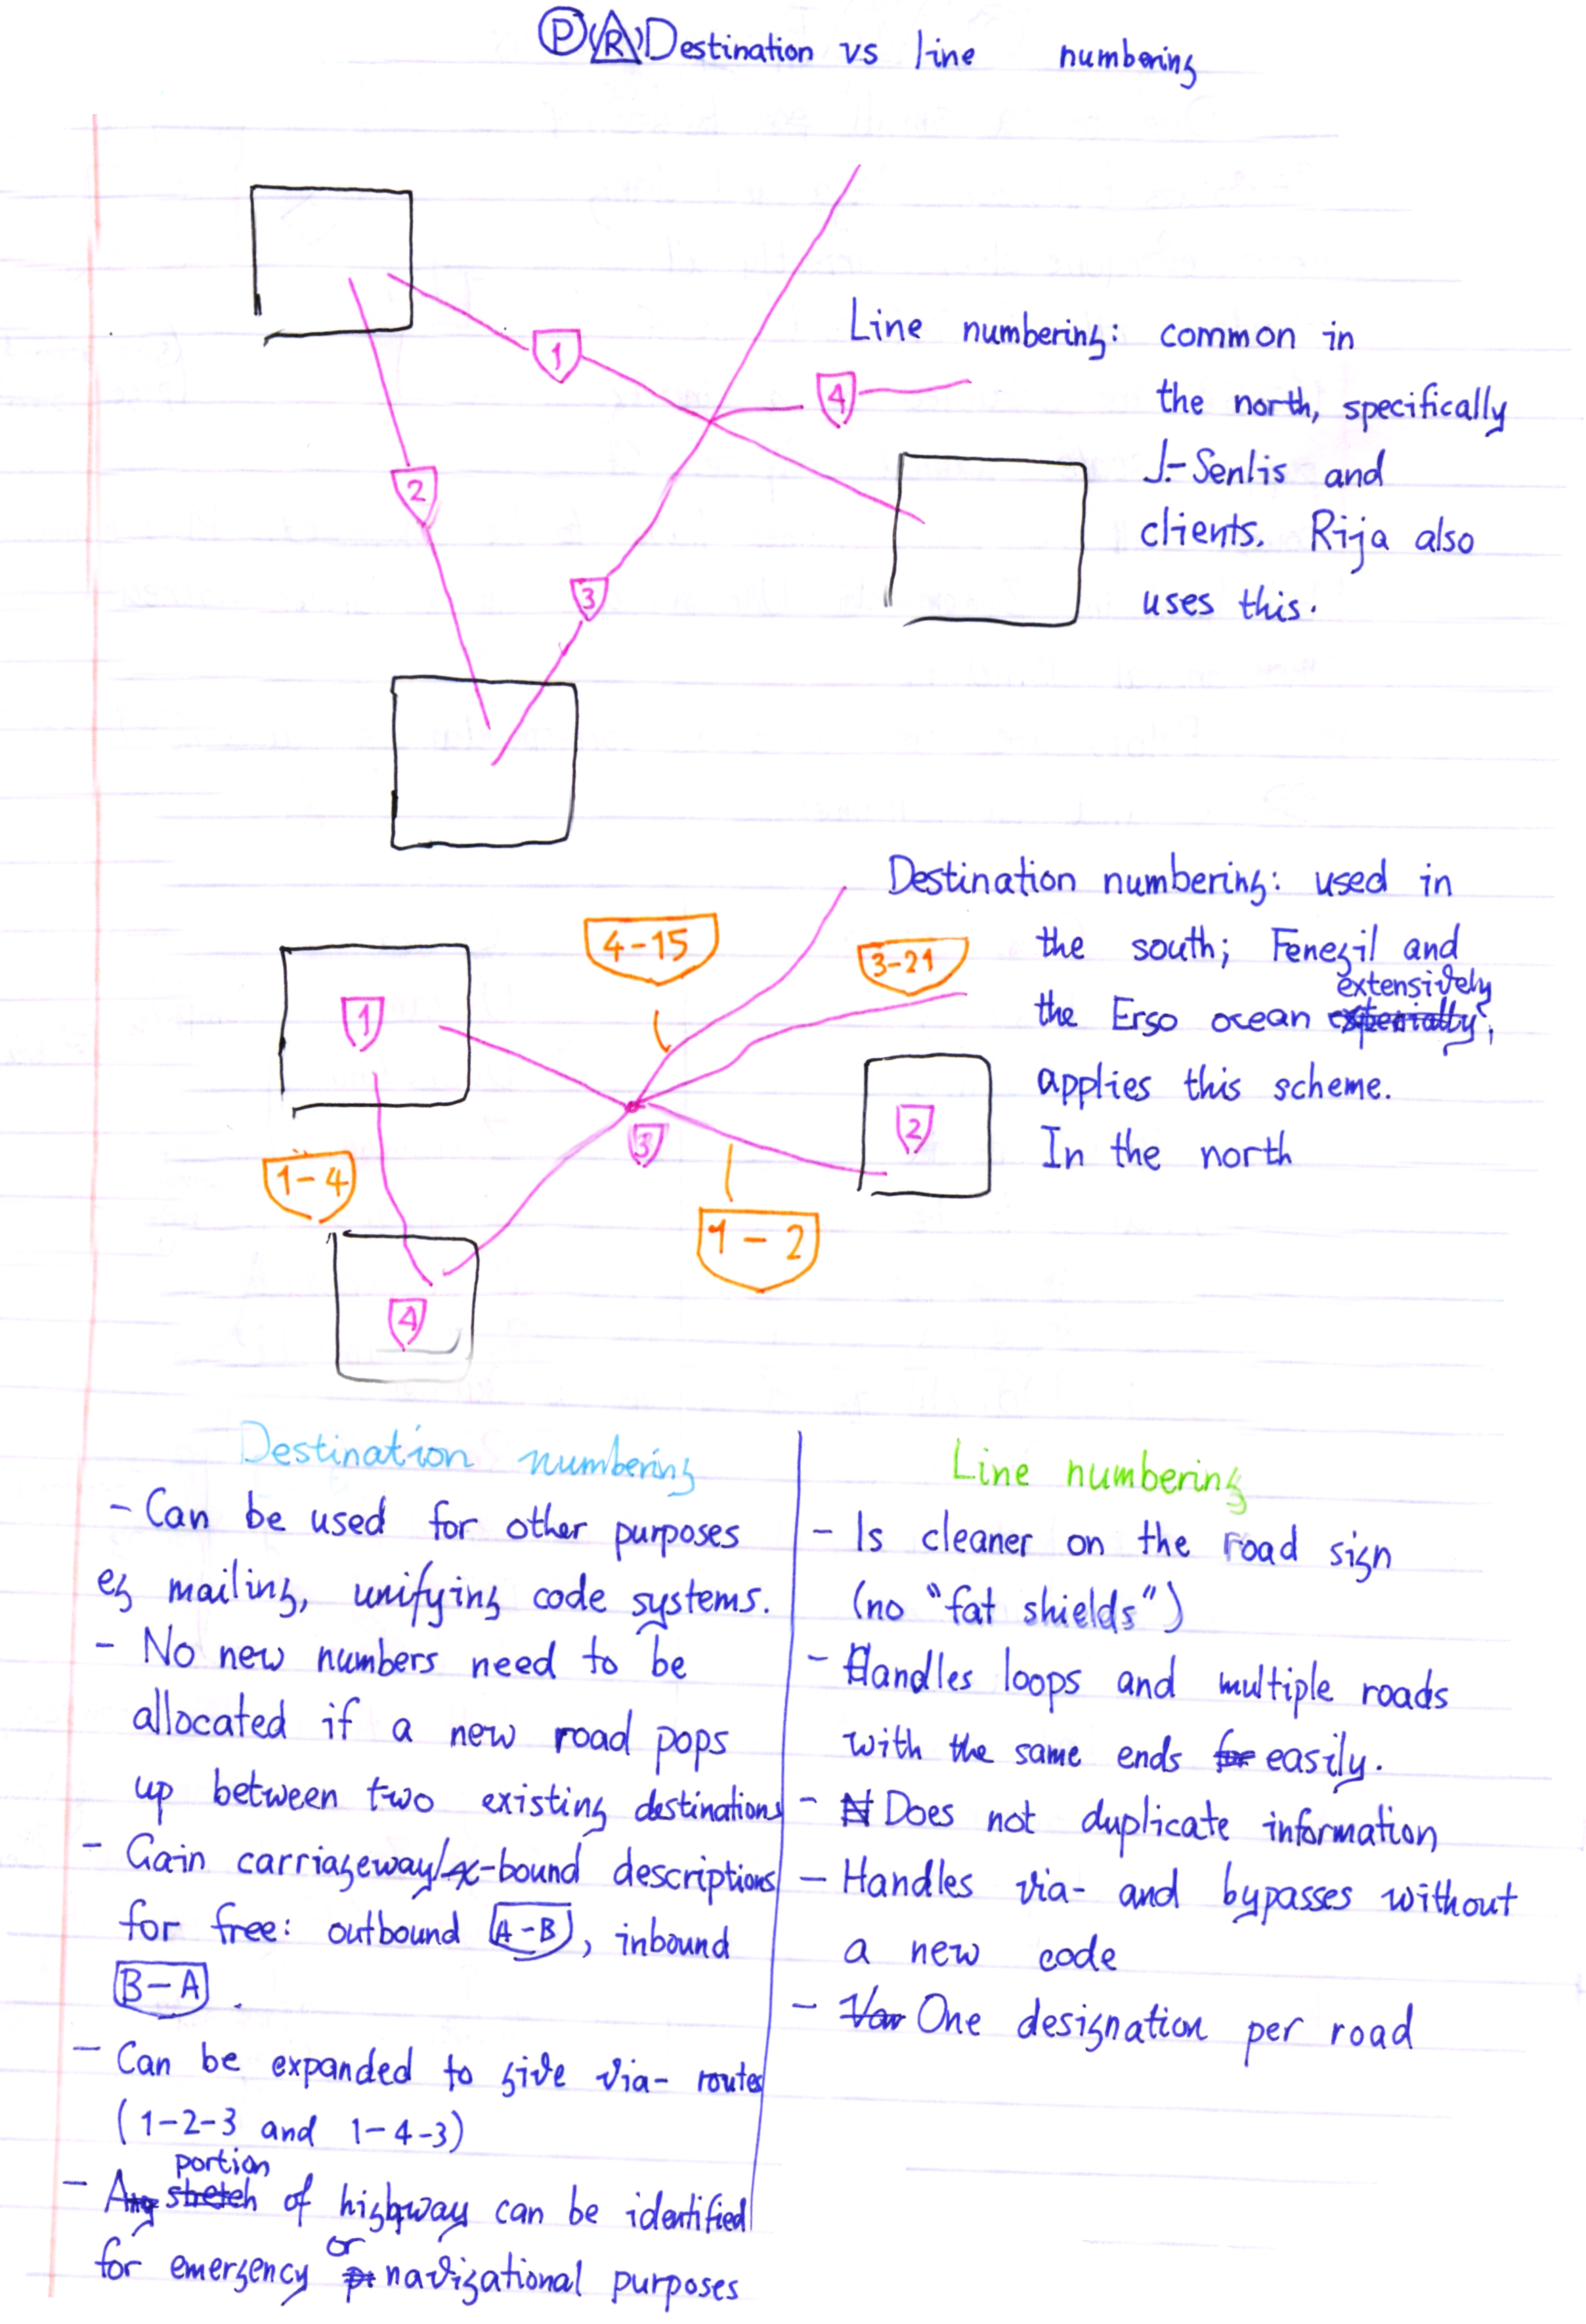 P R Destination vs line numbering
1
4
2
3
Line numbering: common in
the north, specifically
J.-Senlis and
clients. Rija also
uses this.
Destination numbering: used in
the south; Fenegil and
extensively
the Erso ocean especially,
applies this scheme.
In the north
4-15
3-21
1
2
3
1-4
1-2
4
Destination numbering
- Can be used for other purposes
eg mailing, unifying code systems.
- No new numbers need to be
allocated if a new road pops
up between two existing destinations
- Gain carriageway/x-bound descriptions
for free: outbound A-B, inbound
B-A.
- Can be expanded to give via- routes
(1-2-3 and 1-4-3)
portion
- Any stretch of highway can be identified
or
for emergency navigational purposes
Line numbering
- Is cleaner on the road sign
(no "fat shields")
- Handles loops and multiple roads
with the same ends for easily.
- N Does not duplicate information
- Handles via- and bypasses without
a new code
- One designation per road